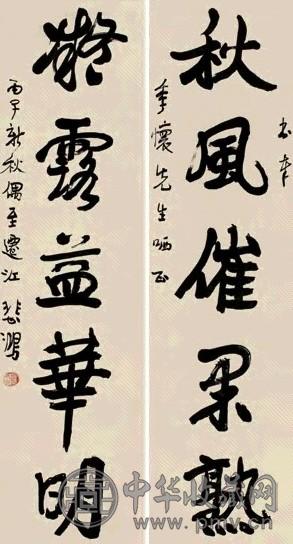 書奉
秋風催果熟
季懷先生哂正
凝露益華明
丙子新秋偶至遷江 悲鴻
中华收藏网